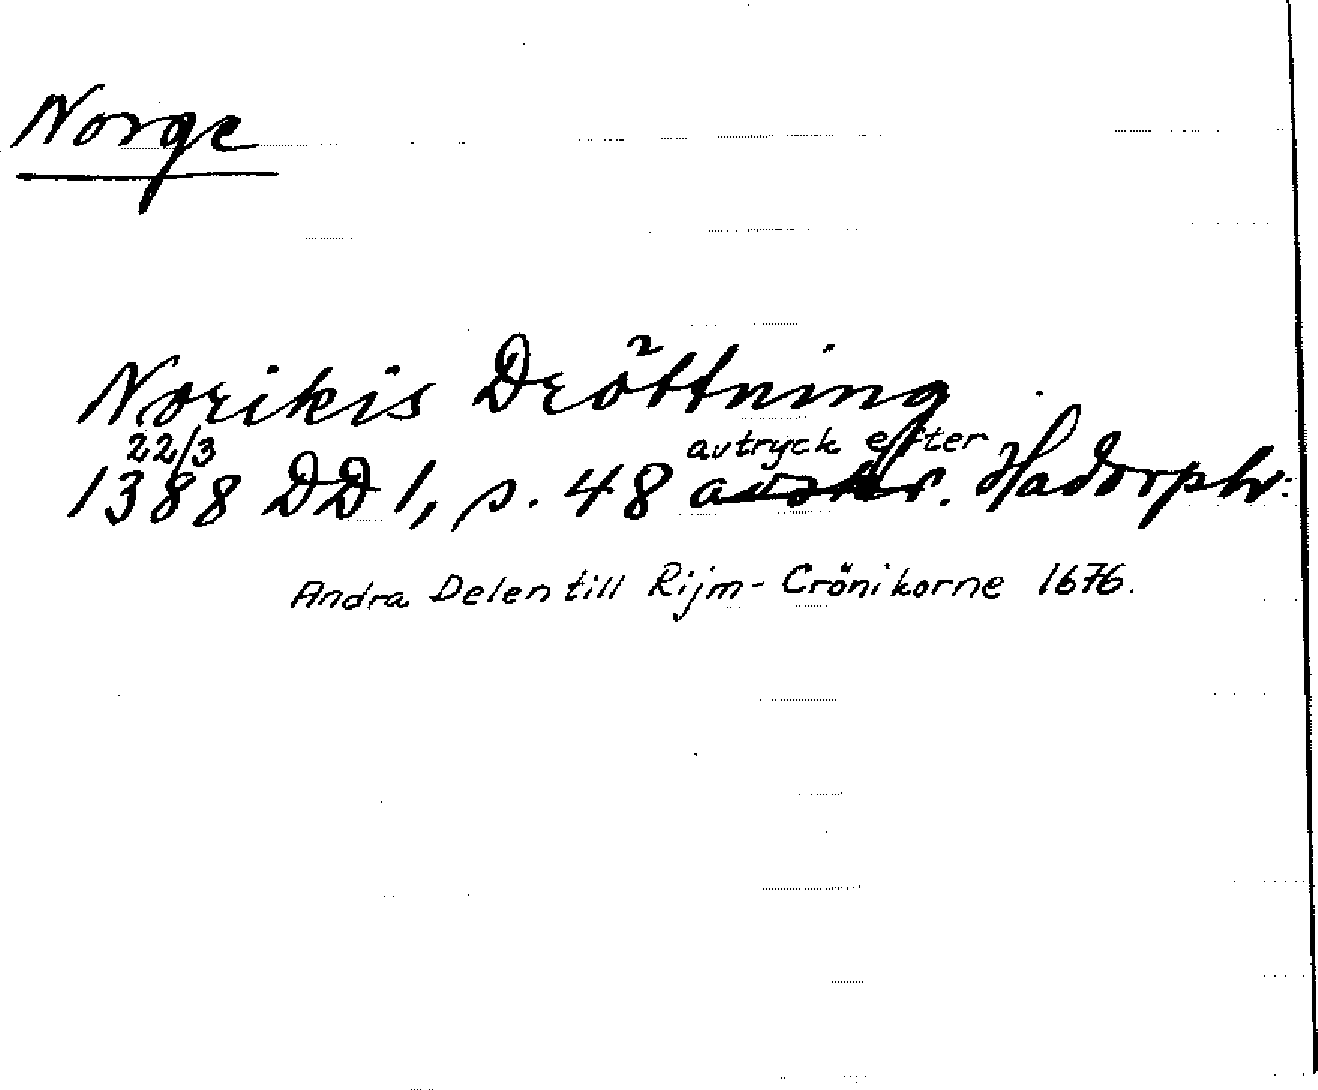 Norge
Norikis Dröttning
22/3 avtryck efter
1388 DD 1, s. 48 avskr. Hadorph:
Andra Delen till Rijm-Crönikorne 1676.